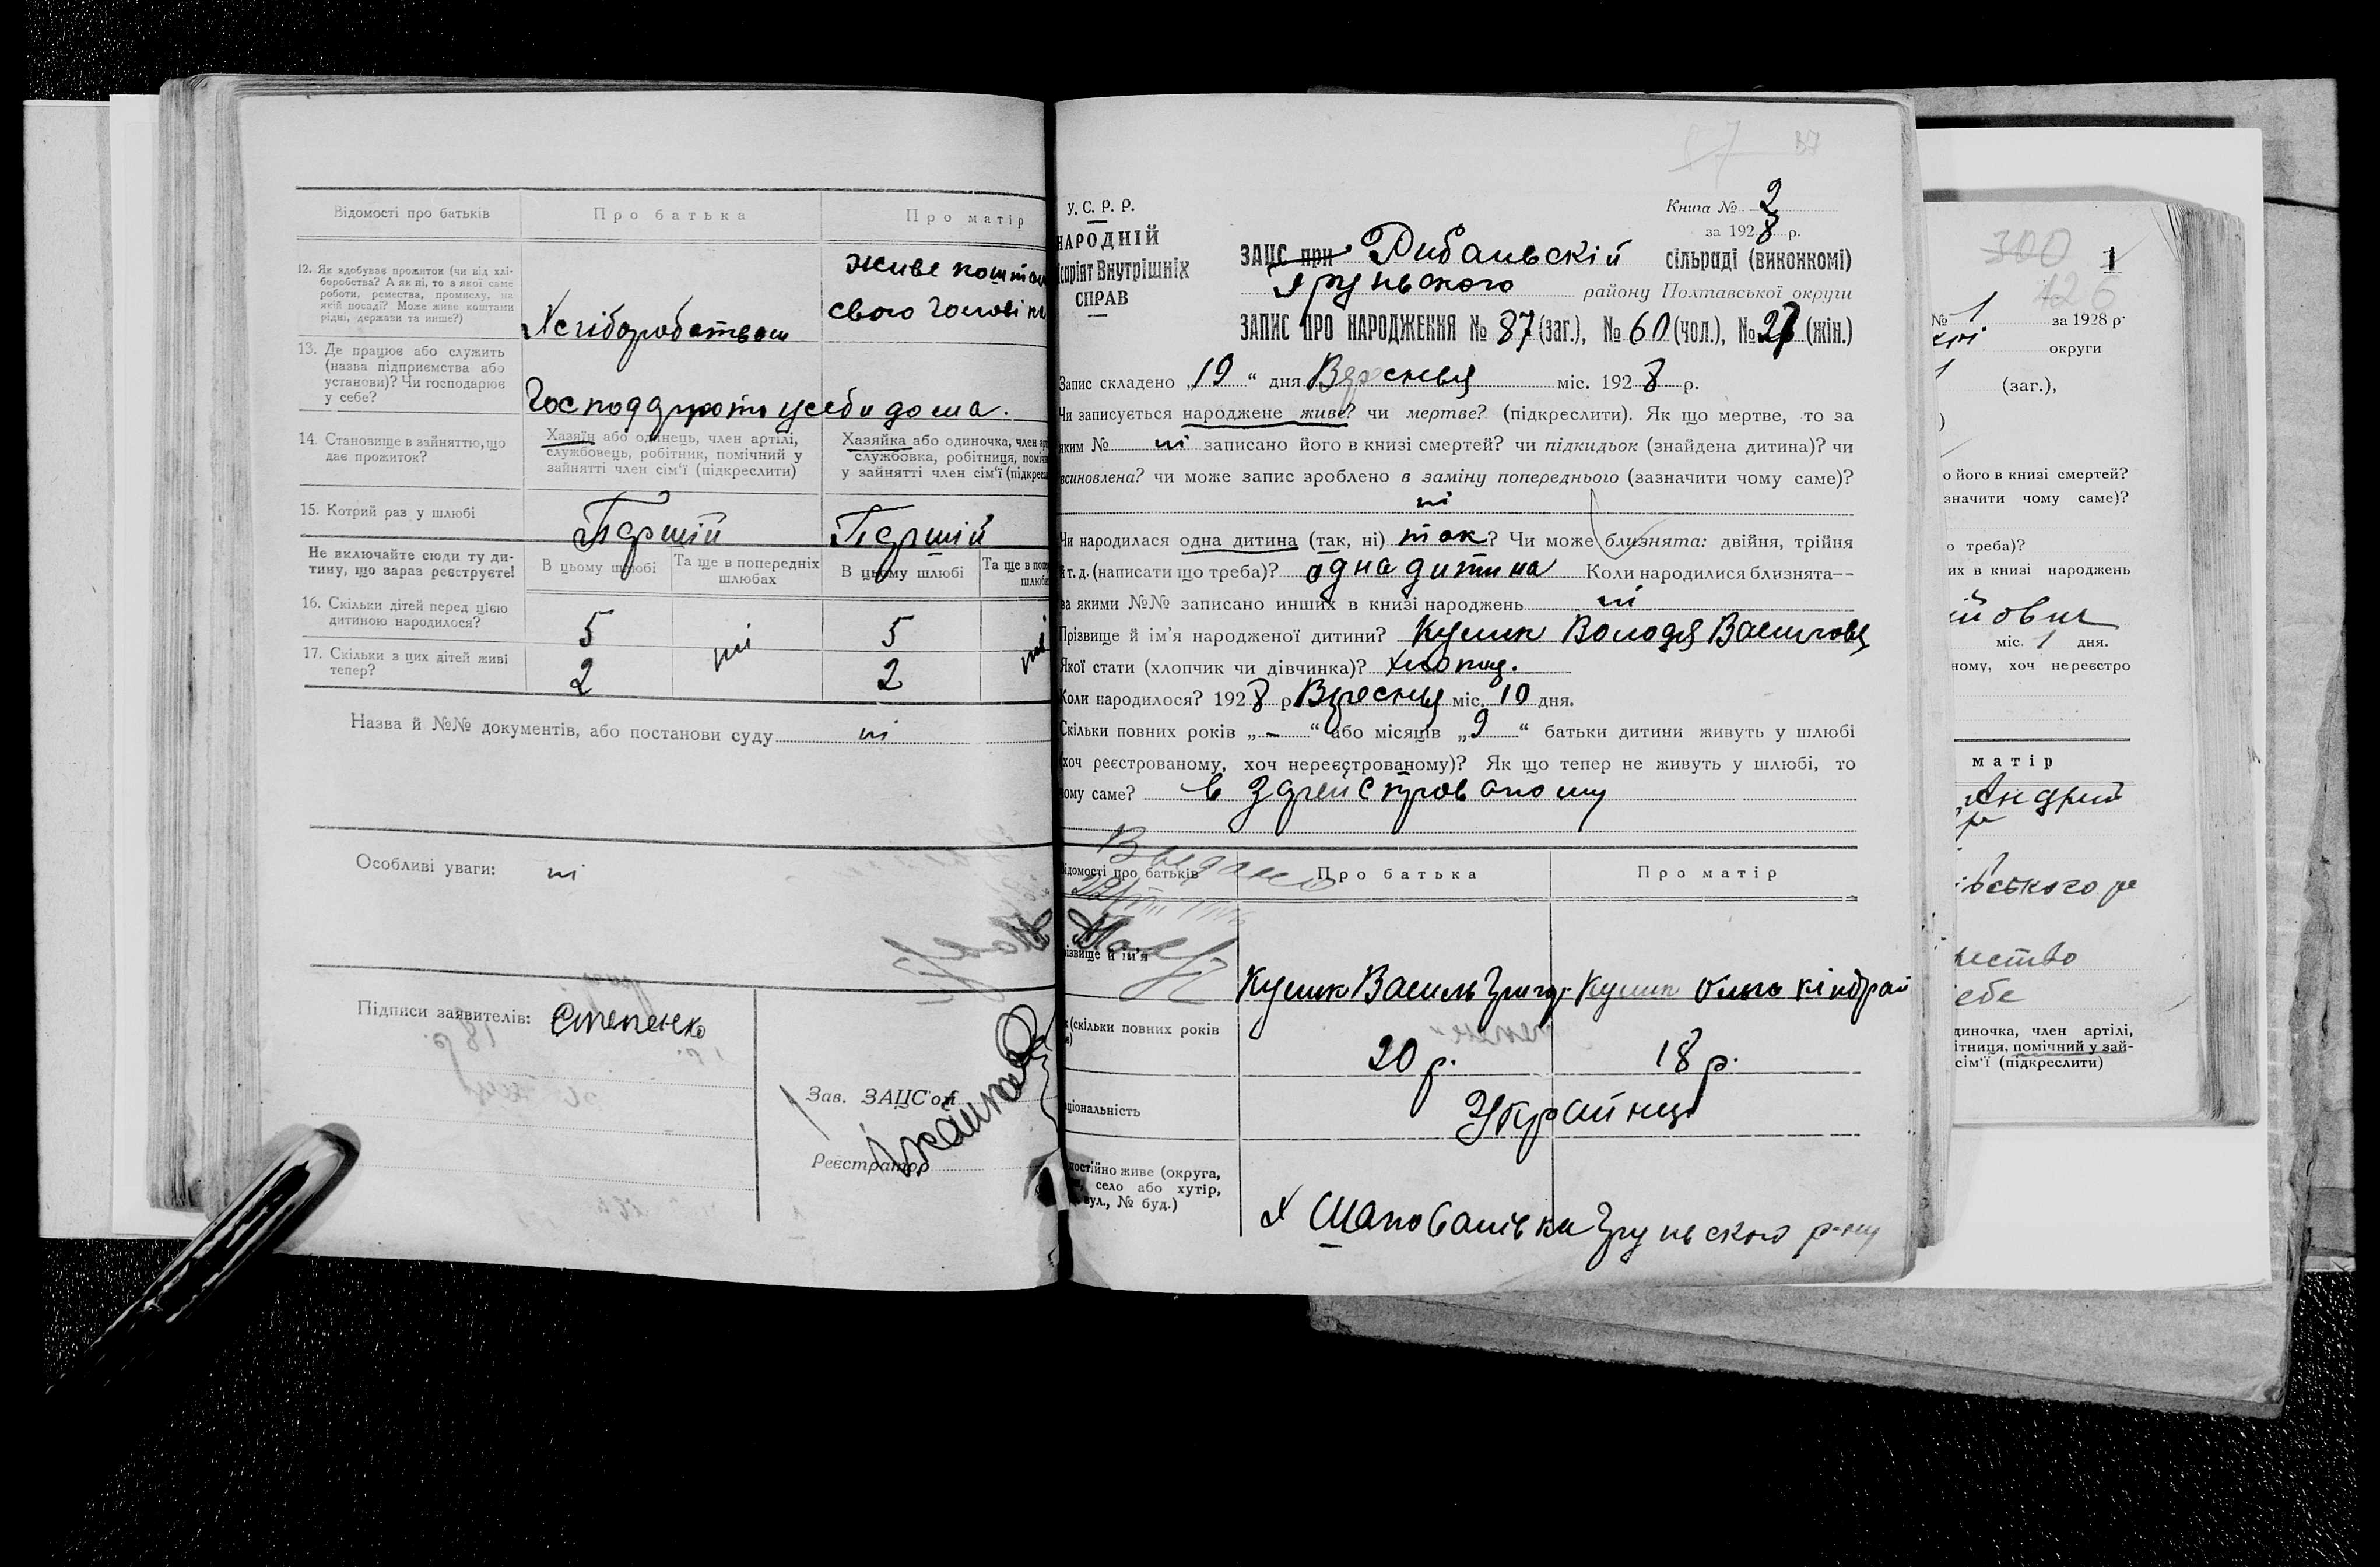 Відомості про батьків
Про батька
Про матір
12. Як здобуває прожиток (чи від хлі-
боробства? А як ні, то з якої саме
роботи, ремества, промислу, на
якій посаді? Може живе коштами
рідні, держави та инше?)
Хліборобством
живе коштом
свого чоловіка
13. Де працює або служить
(назва підприємства або
установи)? Чи господарює
у себе?
дома.
14. Становище в зайняттю, що
дає прожиток?
Хазяїн або одинець, член артілі,
службовець, робітник, помічний у
зайнятті член сім'ї (підкреслити)
Хазяйка або одиночка, член
службовка, робітниця,
у зайнятті член сім'ї
15. Котрий раз у шлюбі
Перший
Перший
Не включайте сюди ту ди-
тину, що зараз реєструєте!
В цьому шлюбі
Та ще в попередніх
шлюбах
В цьому шлюбі
Та ще в
16. Скільки дітей перед цією
дитиною народилося?
5
ні
5
ні
17. Скільки з цих дітей живі
тепер?
2
2
Назва й №№ документів, або постанови суду ні
Особливі уваги: ні
Підписи заявителів: Степенко
Зав. ЗАЦС'ом
Реєстратор
87 87
У. С. Р. Р.
НАРОДНІЙ
Внутрішніх
СПРАВ
Книга № 2
за 1928 р.
ЗАЦС при Рибальскій сільраді (виконкомі)
Груньского району Полтавської округи
ЗАПИС ПРО НАРОДЖЕННЯ № 87 (заг.), № 60 (чол.), № 27 (жін.)
Запис складено „19“ дня Вересня міс. 1928 р.
Чи записується народжене живе? чи мертве? (підкреслити). Як що мертве, то за
яким № ні записано його в книзі смертей? чи підкидьок (знайдена дитина)? чи
всиновлена? чи може запис зроблено в заміну попереднього (зазначити чому саме)?
ні
Чи народилася одна дитина (так, ні) так? Чи може близнята: двійня, трійня
й т. д. (написати що треба)? одна дитина Коли народилися близнята—
за якими №№ записано инших в книзі народжень ні
Прізвище й ім'я народженої дитини? Кулик Володя
Якої стати (хлопчик чи дівчинка)? хлопец.
Коли народилося? 1928 р. Вересня міс. 10 дня.
Скільки повних років „-“ або місяців „9“ батьки дитини живуть у шлюбі
(хоч реєстрованому, хоч нереєстрованому)? Як що тепер не живуть у шлюбі, то
чому саме? в
Видано
Відомості про батьків
Про батька
Про матір
Прізвище й ім'я
Кулик Василь Григор
Кулик Ольга
(скільки повних років
20 р.
18 р.
національність
Українці
постійно живе (округа,
село або хутір,
вул., № буд.)
х Шаповалівка Груньского р-ну
300
126
1
№ 1 за 1928 р.
округи
(заг.),
о його в книзі смертей?
значити чому саме)?
о треба)?
их в книзі народжень
міс. 1 дня.
ному, хоч нереєстро
матір
ського
диночка, член артілі,
ітниця, помічний у зай-
сім'ї (підкреслити)